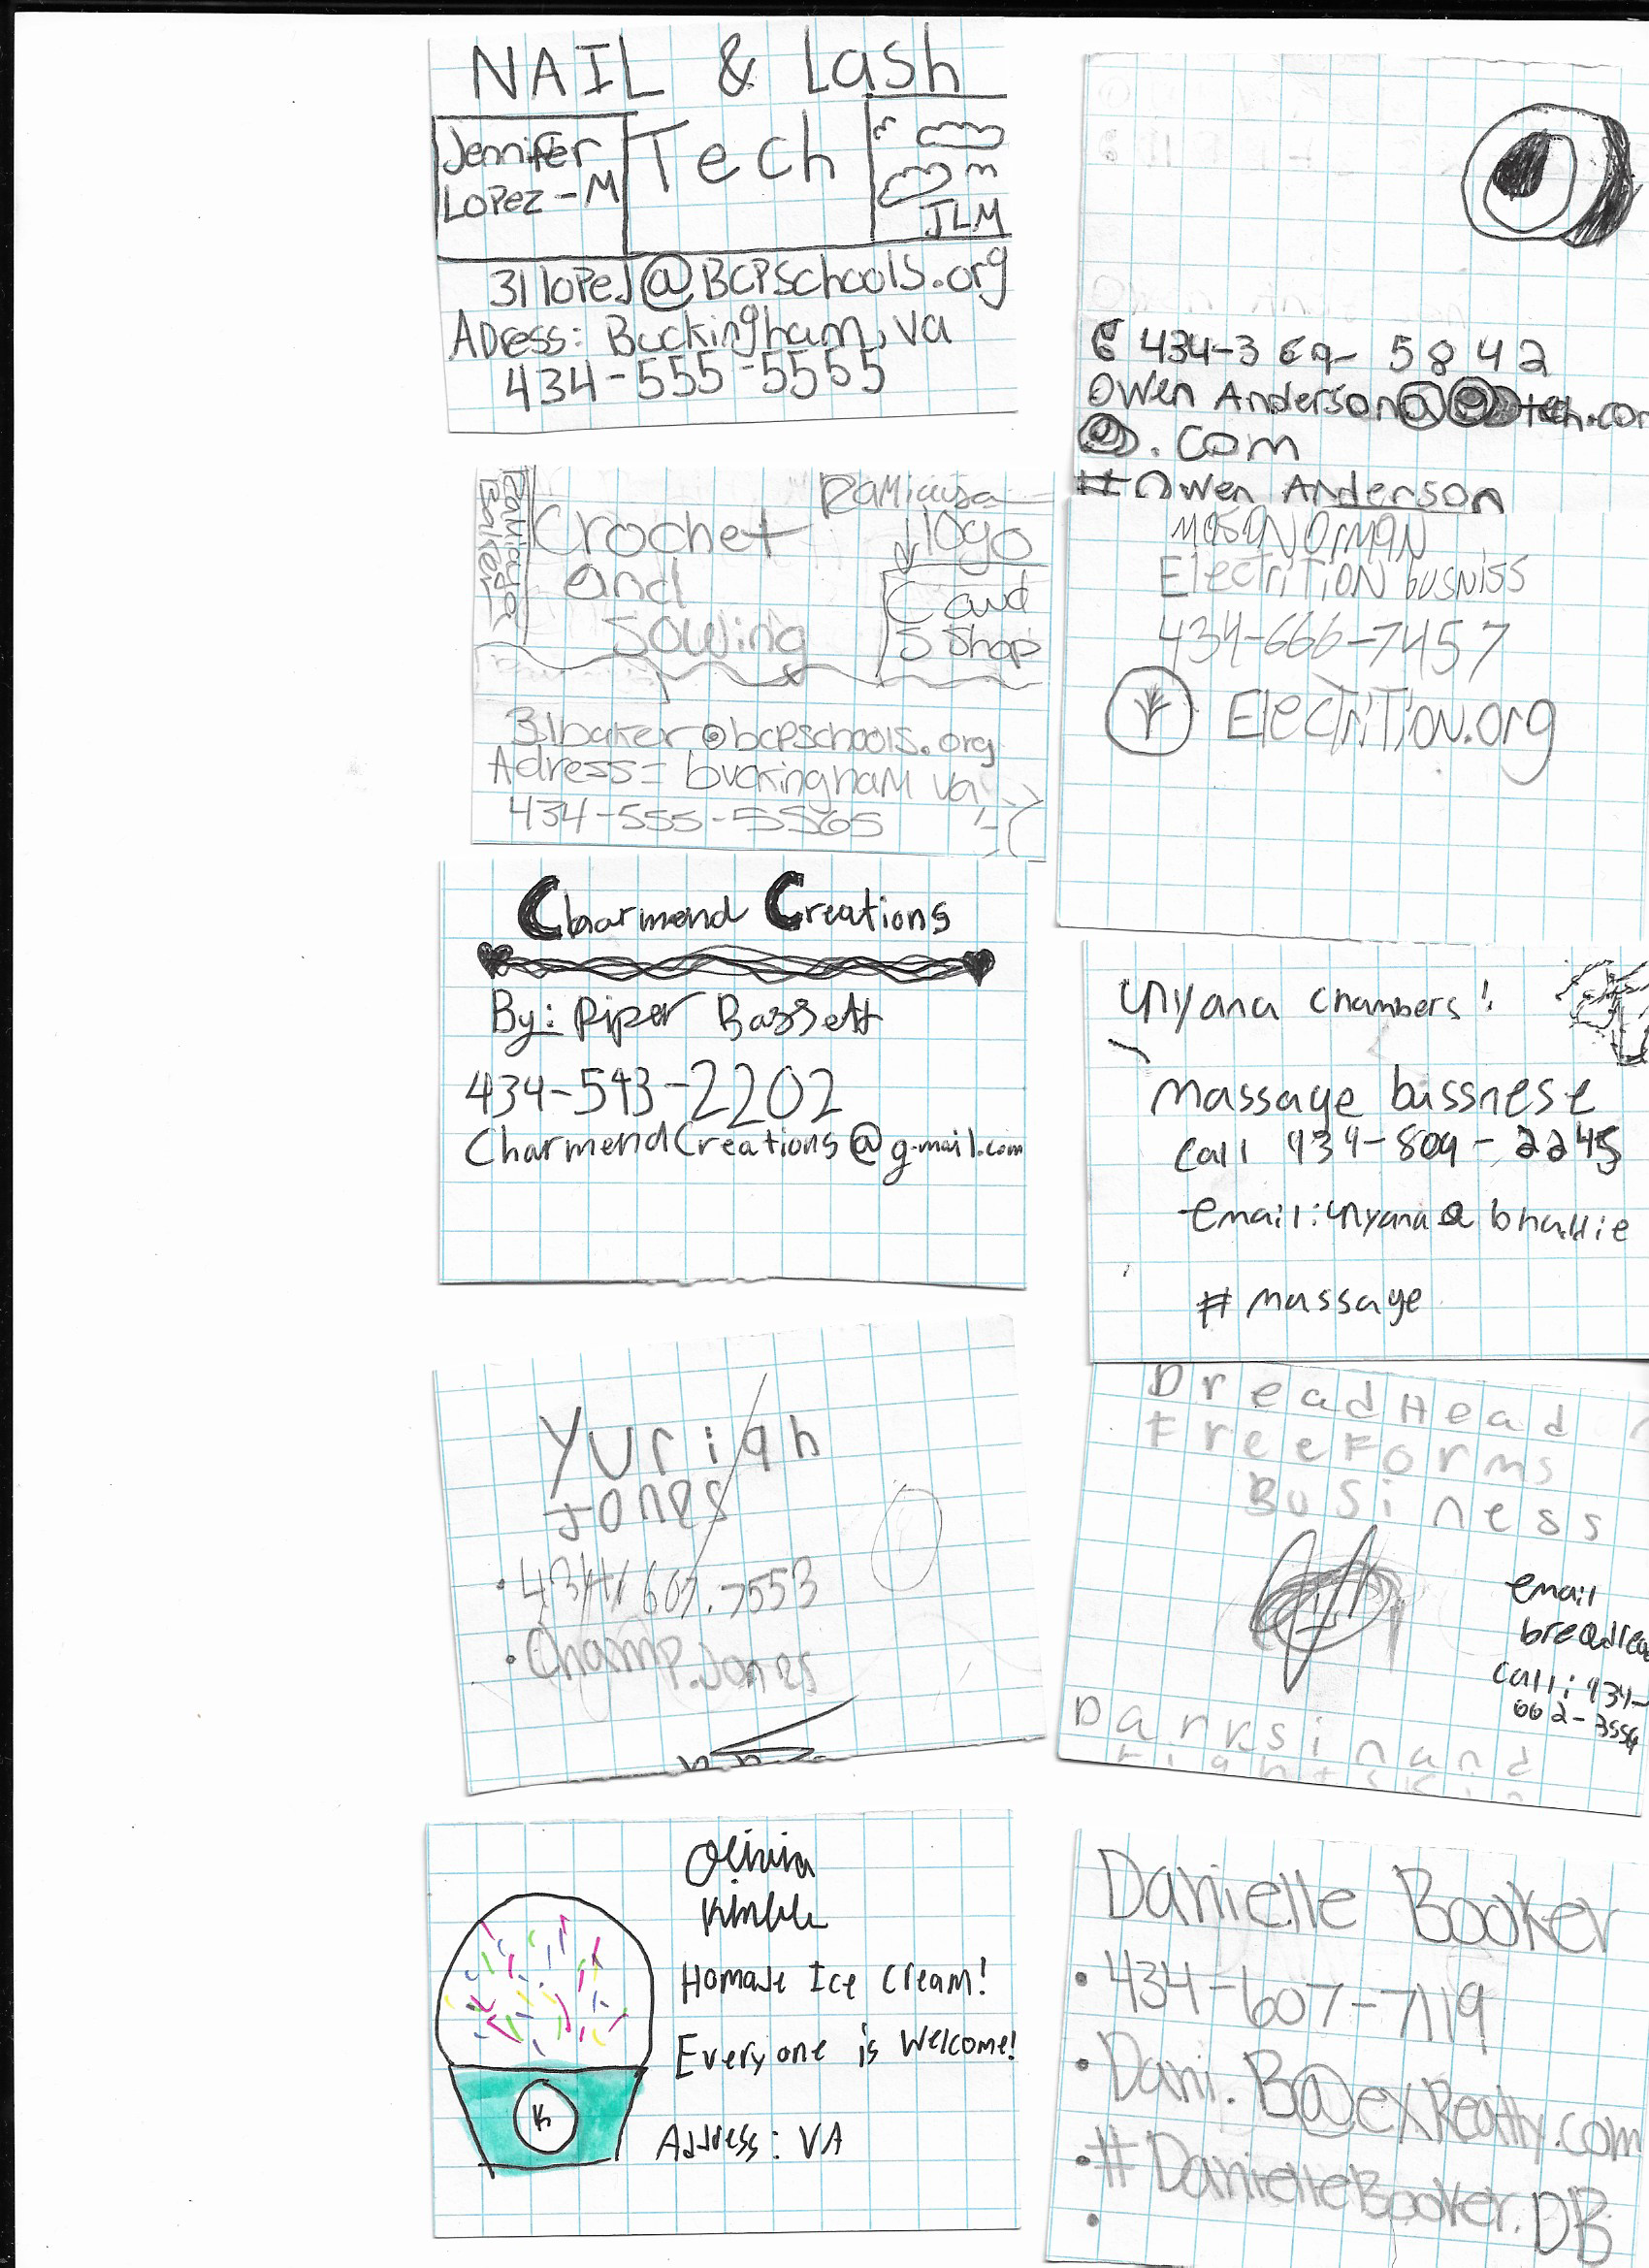 NAIL & Lash
Tech
Jennifer
Lopez-M
JLM
31lopeJ@BCPSchools.org
ADress: Buckingham, va
434-555-5555
Crochet
and
sowing
logo
C and
S Shop
31baker@bcpschools.org
Adress= buckingham va
434-555-5565
Charmend Creations
By: Piper Bassett
434-543-2202
CharmendCreations@g-mail.com
Yuriah
Jones
607.7553
Champ.Jones
Olivia
Kimble
Homade Ice Cream!
Everyone is Welcome!
Address: VA
K
434-369-5842
Owen Anderson@
tech.com
.com
#Owen Anderson
MASON ORMAN
ElectriTiON busniss
434-666-7457
ElecTriTiON.org
chambers!
massage bussnese
call 434-809-2245
email:
# massage
DreadHead
Freeforms
Business
email
call: 434-
662-3556
Danielle Booker
434-607-7119
Dani.B@exRealty.com
#DanielleBooker.DB